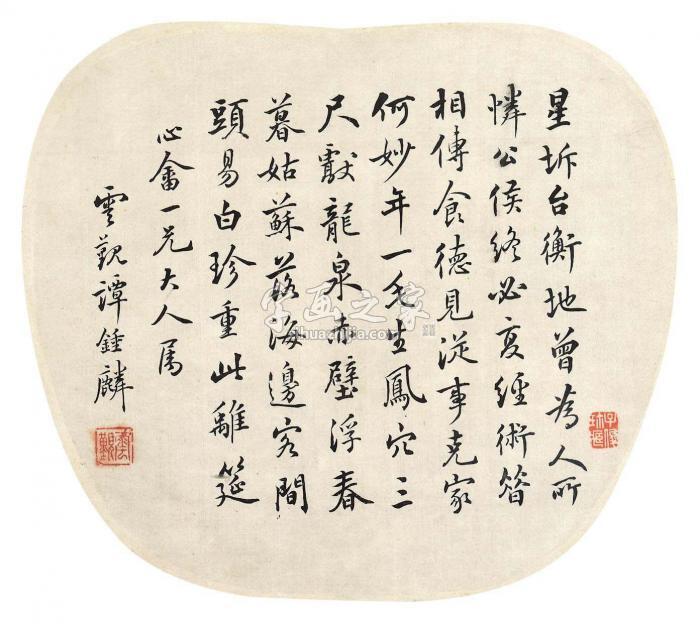 星坼台衡地曾為人所
憐公侯終必复經術昔
相傳食德見從事克家
何妙年一毛生鳳穴三
尺獻龍泉赤壁浮春
暮姑蘇落海邊客間
頭易白珍重此離筵
心畬一兄大人属
雲覲譚鍾麟
字画之家